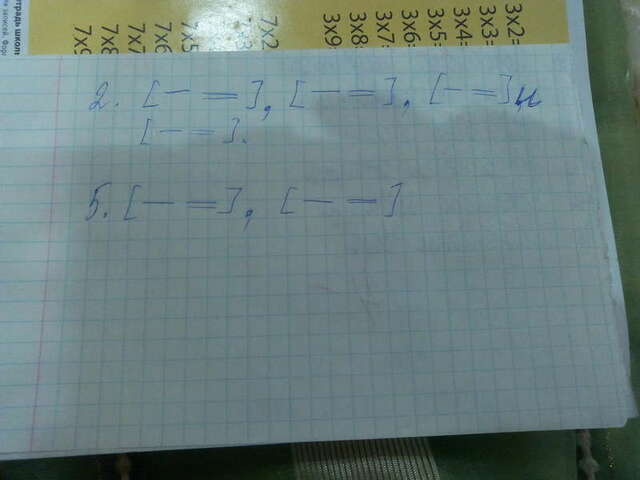 тетрадь школь
ия записей. Фор
3x2=
3x3=
3x4=
3x5=
3x6=
3x7=
3x8=
3x9=
7x2
7x5
7x6
7x7
7x8
7x9
2. [— =], [— =], [— =] и
[— =].
5. [— =], [— =]